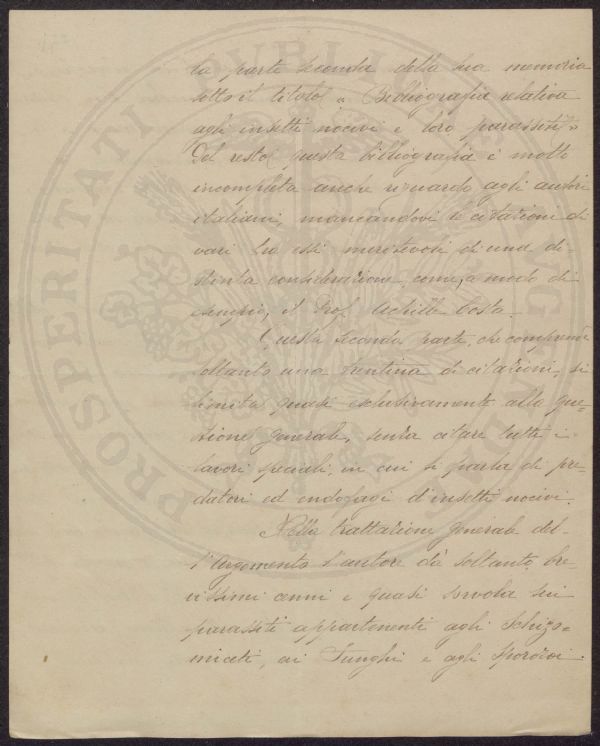 la parte seconda della sua memoria
sotto il titolo « Bibliografia relativa
agli insetti nocivi e loro parassiti ».
Del resto questa bibliografia è molto
incompleta anche riguardo agli autori
italiani, mancandovi le citazioni di
vari tra essi meritevoli di una di-
stinta considerazione, come, a modo di
esempio, il Prof. Achille Costa.
Questa seconda parte, che comprende
soltanto una trentina di citazioni, si
limita quasi esclusivamente alla que-
stione generale, senza citare tutti i
lavori speciali, in cui si parla di pre-
datori ed endofagi d'insetti nocivi.
Nella trattazione generale del-
l'argomento l'autore dà soltanto bre-
vissimi cenni e quasi sorvola sui
parassiti appartenenti agli Schizo-
miceti, ai Funghi e agli Sporozoi.
PROSPERITATI PUBLICAE AUGENDAE